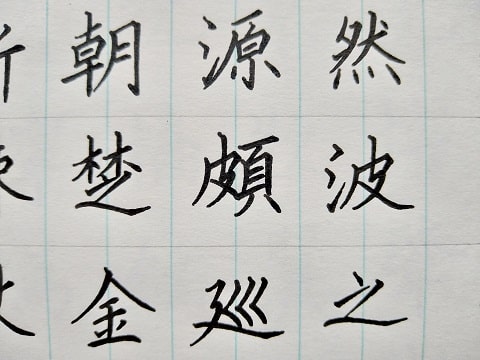 然波之
源頗廵
朝楚金